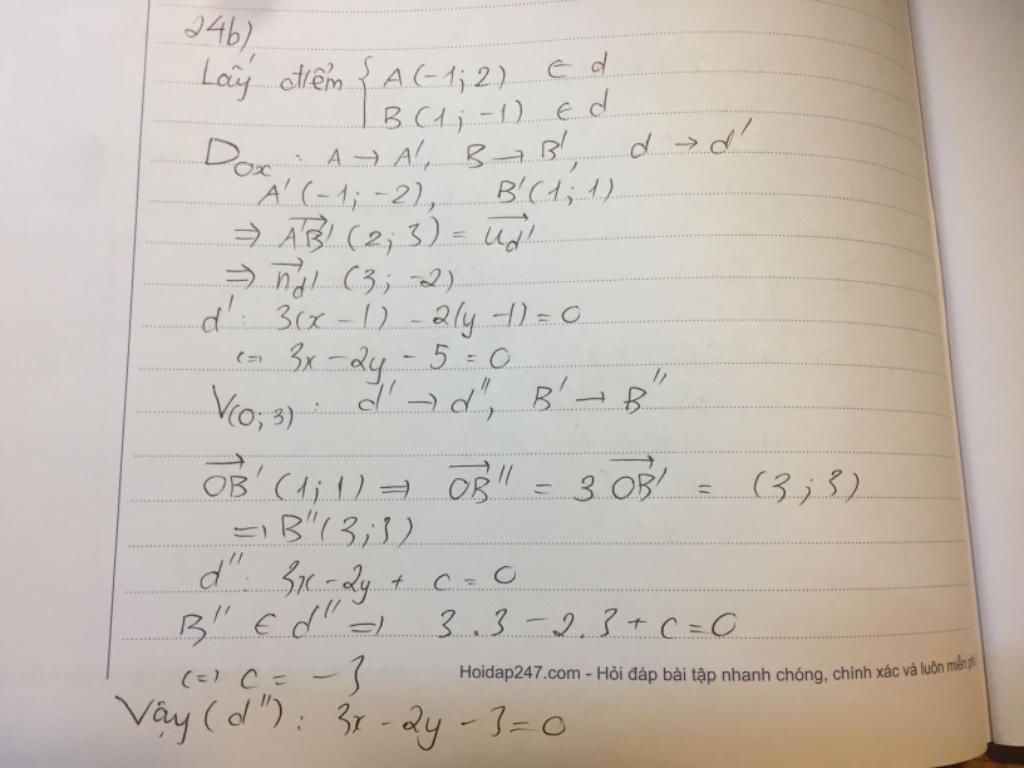 24b)
Lấy điểm { A(-1; 2) ∈ d
B(1; -1) ∈ d
Đox : A → A', B → B', d → d'
A'(-1; -2), B'(1; 1)
⇒ A'B' (2; 3) = ud'
⇒ nd' (3; -2)
d': 3(x - 1) - 2(y - 1) = 0
<=> 3x - 2y - 5 = 0
V(O; 3) : d' → d'', B' → B''
OB' (1; 1) => OB'' = 3 OB' = (3; 3)
=> B''(3; 3)
d'': 3x - 2y + c = 0
B'' ∈ d'' => 3.3 - 2.3 + c = 0
<=> c = -3
Hoidap247.com - Hỏi đáp bài tập nhanh chóng, chính xác và luôn miễn phí
Vậy (d''): 3x - 2y - 3 = 0